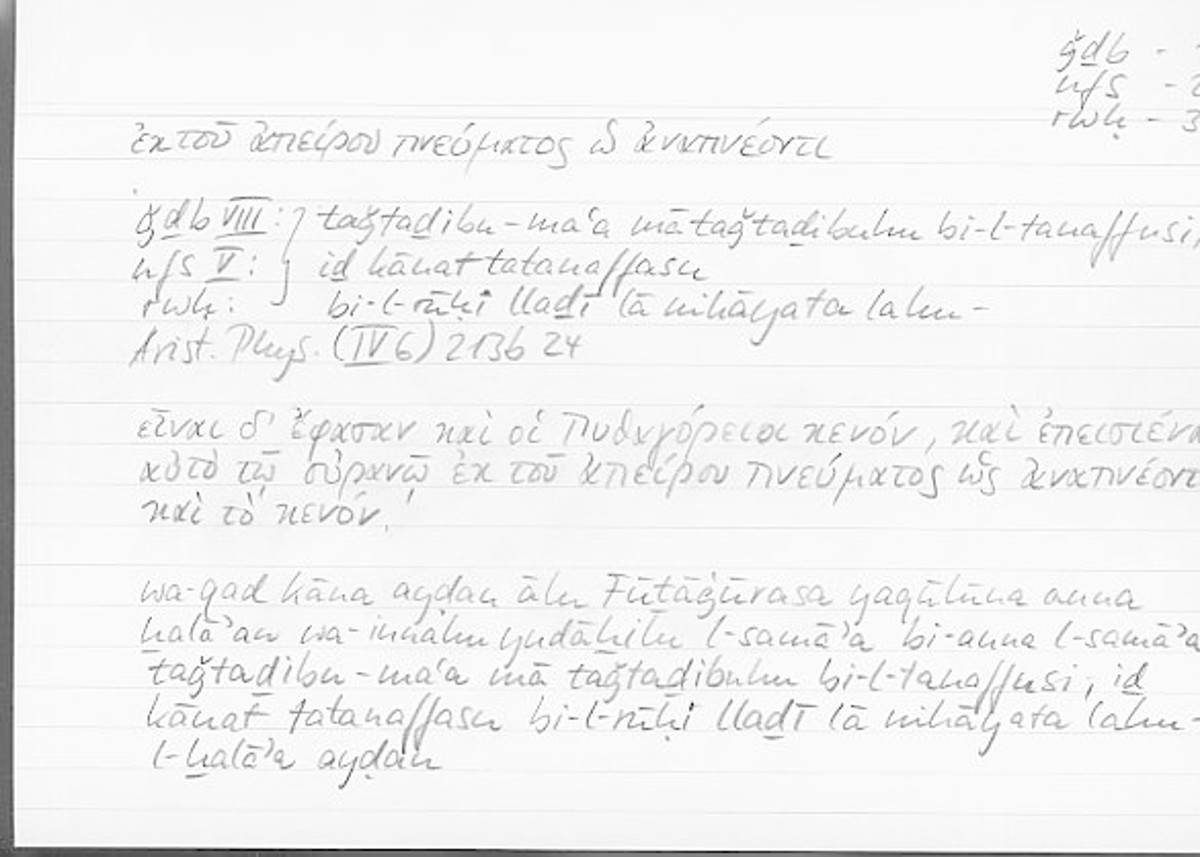 ǧḏb -
nfs - 2
rwḥ - 3
ἐκ τοῦ ἀπείρου πνεύματος ὡ ἀναπνέοντι
ǧḏb VIII: } taǧtaḏibu-ma'a mā taǧtaḏibuhu bi-l-tanaffusi,
nfs V: } iḏ kānat tatanaffasu
rwḥ: bi-l-rūḥi llaḏī lā nihāyata lahu-
Arist. Phys. (IV 6) 213b 24
εἶναι δ' ἔφασαν καὶ οἱ Πυθαγόρειοι κενόν, καὶ ἐπεισιένα
αὐτὸ τῷ οὐρανῷ ἐκ τοῦ ἀπείρου πνεύματος ὡς ἀναπνέοντ
καὶ τὸ κενόν,
wa-qad kāna ayḍan ālu Fūṯāġūrasa yaqūlūna anna
ḫalā'an wa-innahu yudāḫilu l-samā'a bi-anna l-samā'a
taǧtaḏibu-ma'a mā taǧtaḏibuhu bi-l-tanaffusi, iḏ
kānat tatanaffasu bi-l-rūḥi llaḏī lā nihāyata lahu-
l-ḫalā'a ayḍan